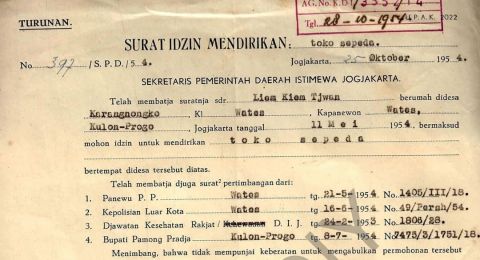 AG.No.K.D. 13554/14
Tgl. 28-10-1954 P.A.K. 2022
TURUNAN.
SURAT IDZIN MENDIRIKAN: toko sepeda.
No. 397 / S.P.D. / 5 4. Jogjakarta, 25 Oktober 195 4.
SEKRETARIS PEMERINTAH DAERAH ISTIMEWA JOGJAKARTA.
Telah membatja suratnja sdr. Liem Kiem Tjwan berumah didesa
Karangnongko Kl Wates Kapanewon Wates,
Kulon-Progo Jogjakarta tanggal 11 Mei 195 4. bermaksud
mohon idzin untuk mendirikan toko sepeda
bertempat didesa tersebut diatas.
Telah membatja djuga surat² pertimbangan dari:
1. Panewu P. P. Wates tg. 21-5- 195 4 No. 1405/III/18.
2. Kepolisian Luar Kota Wates tg. 16-6- 195 4 No. 49/Persh/54.
3. Djawatan Kesehatan Rakjat / D. I. J. tg. 24-2- 195 No. 1806/28.
4. Bupati Pamong Pradja Kulon-Progo tg. 8-7- 195 4 No. 7475/3/1751/18.
Menimbang, bahwa tidak mempunjai keberatan untuk mengabulkan permohonan tersebut